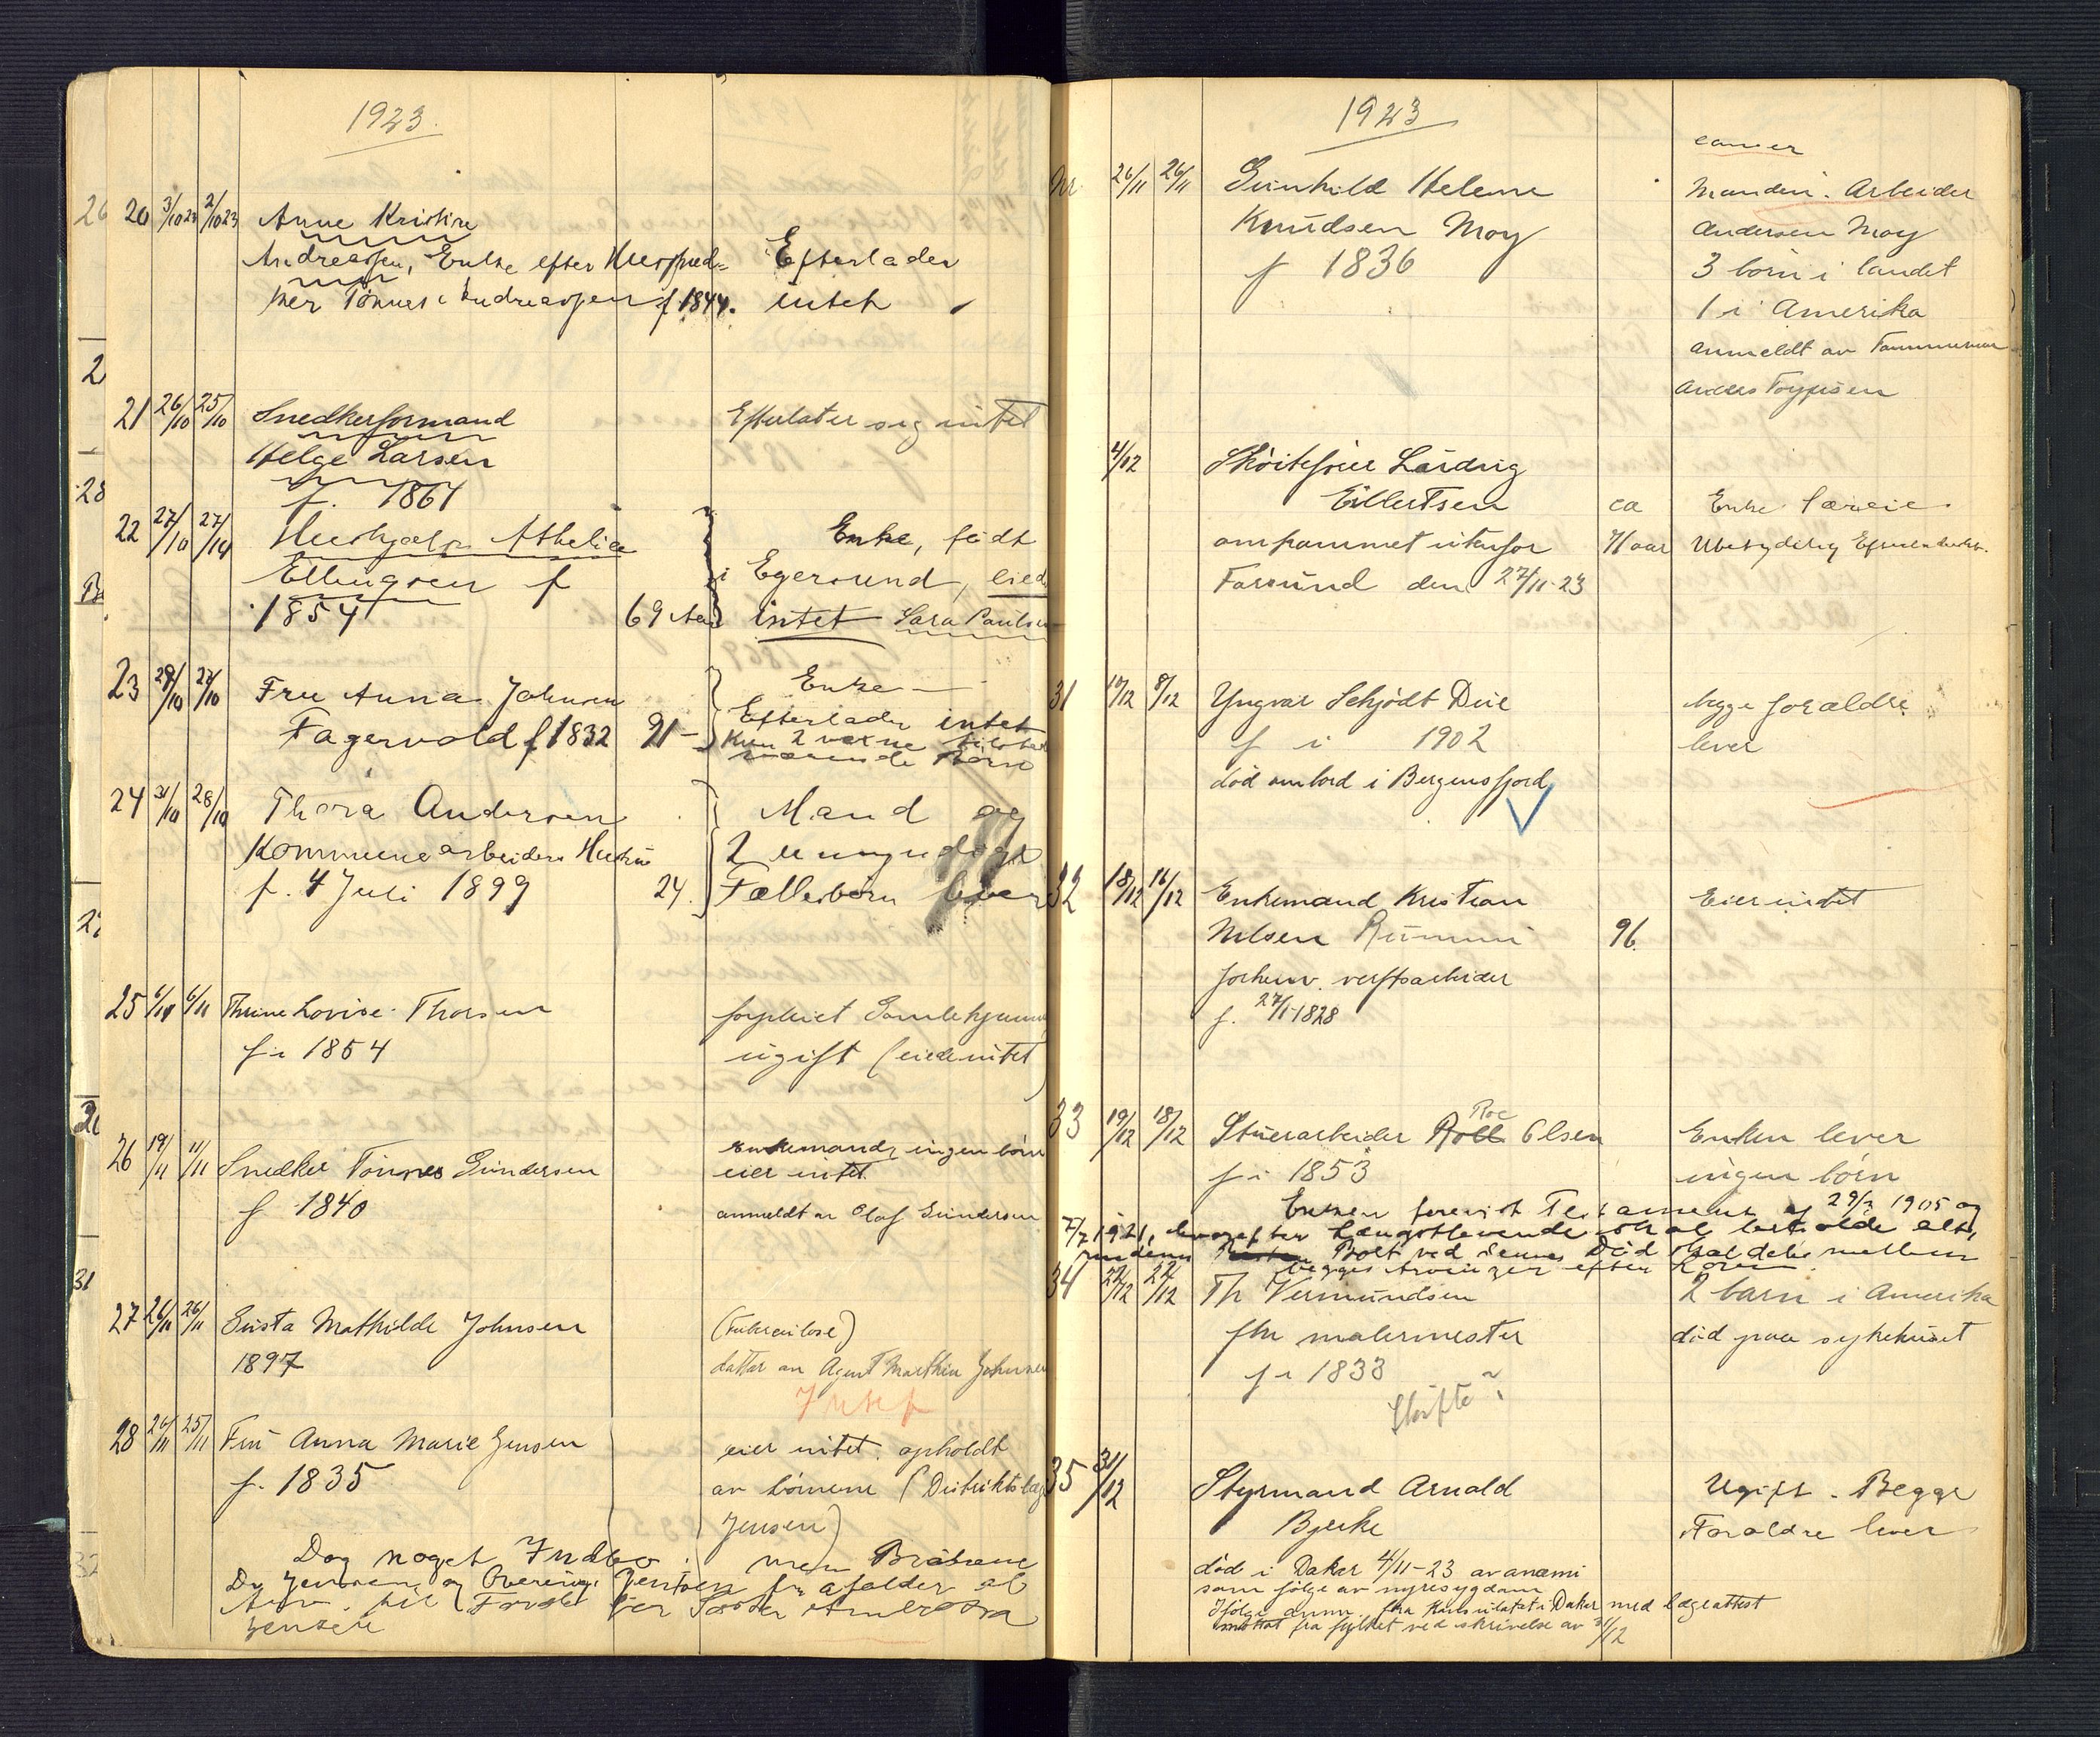 1923.
20 3/10 23 2/10 23 Anne Kristine
Andreassen, Enke efter
Tønnes Andreassen f 1844.
Efterlader
intet
21 26/10 25/10 Snedkerformand
Helge Larsen
f. 1861
Efterlater sig intet
22 27/10 27/10 Hushjælp Athelie
Ellingsen f
1854
69 Aar
Enke, født
i Egersund, eied
intet Sara Paulsen
23 29/10 27/10 Fru Anna Johnsen
Fagervold f 1832 91 -
Enke —
Efterlader intet
Kun 2 voxne
værende Børn
24 31/10 28/10 Thora Andersen
Kommunearbeiders Hustru
f. 4 Juli 1899 24.
Mand og
2 umyndige
Fællesbørn lever
25 6/11 6/11 Thrine Lovise Thorsen
f i 1854
forpleiet Gamlehjemmet
ugift (eiede intet)
26 19/11 11/11 Snedker Tønnes Gundersen
f 1840
enkemand, ingen børn
eier intet.
anmeldt av Olaf Gundersen
27 26/11 26/11 Gusta Mathilde Johnsen
1897
(Tuberculose)
datter av Agent Mathin Johnsen
Intet
28 26/11 25/11 Fru Anna Marie Jensen
f. 1835
eier intet. opholdt
av børnene (Distriktslæge
Jensen)
Dog noget Indbo, men Brødrene
Dr Jensen og Overing. Jensen
Arv til Fordel for Søster
Jensen
1923
26/11 26/11 Gunhild Helene
Knudsen Moy
f 1836
cancer
Manden: Arbeider
Andersen Moy
3 børn i landet
1 i Amerika
anmeldt av Tømmermand
Anders
4/12 Skøitefører Ludvig
Eilertsen
omkommet utenfor
Farsund den 27/11-23
ca
71 aar
Enke
Ubetydelig
31 10/12 8/12 Yngvar Schjødt Due
f i 1902
død ombord i Bergensfjord
begge forældre
lever
32 18/12 16/12 Enkemand Kristian
Nilsen
forhenv. verftsarbeider
f. 27/1-1828
96.
Eier intet
33 19/12 18/12 Stuerarbeider Roc Olsen
f i 1853
Enken lever
ingen børn
Enken forevist Testament af 29/3 1905 og
7/7 1921, hvorefter Længstlevende skal beholde alt,
medens Boet ved dennes Død skal deles mellem
begges Arvinger efter Loven.
34 22/12 22/12 Th Vermundsen
fhv malermester
f i 1833
Skifte?
2 barn i Amerika
død paa sykehuset
35 31/12 Styrmand Arnold
Bjerke
Ugift. Begge
Forældre lever
død i Dakar 4/11-23 av anæmi
som følge av nyresygdom
Ifølge anm. fra Konsulatet i Dakar med lægeattest
mottat fra fylket ved skrivelse av 31/12